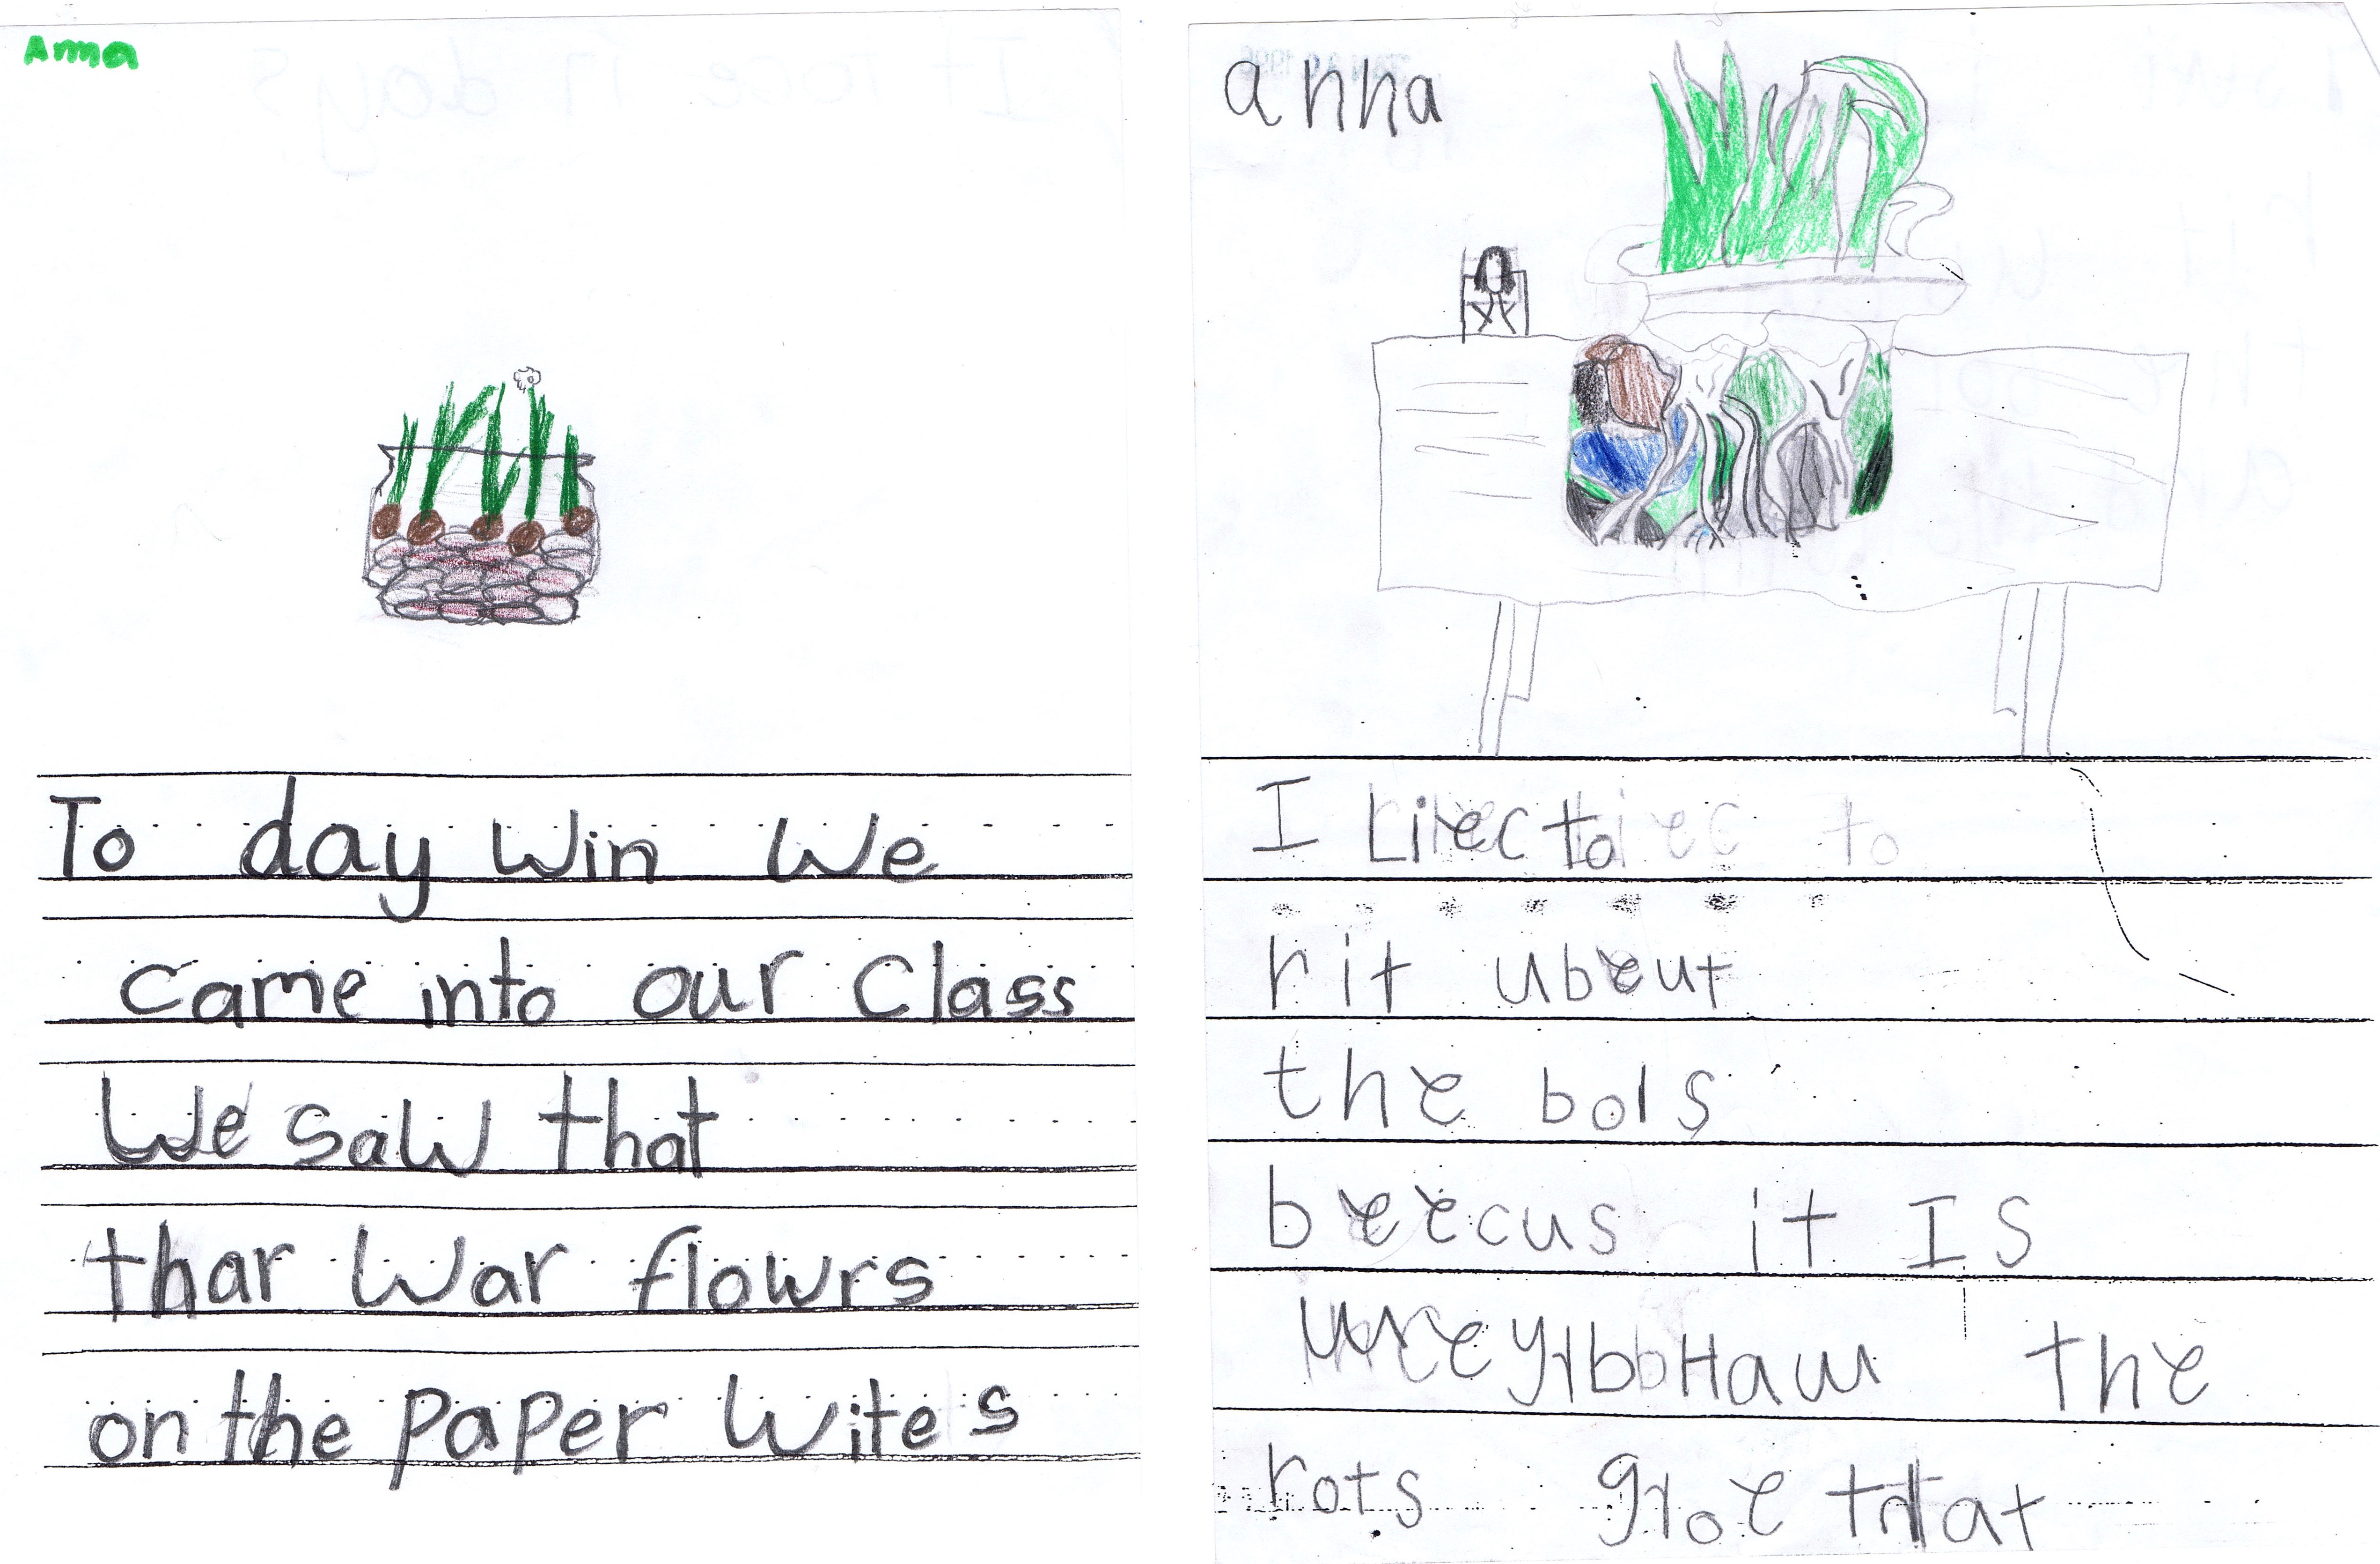 Anna
To day Win We
came into our Class
We saw that
thar War flowrs
on the paper Wites
anna
I Liec to
rit ubeut
the bols
beecus it IS
the
rots groe that